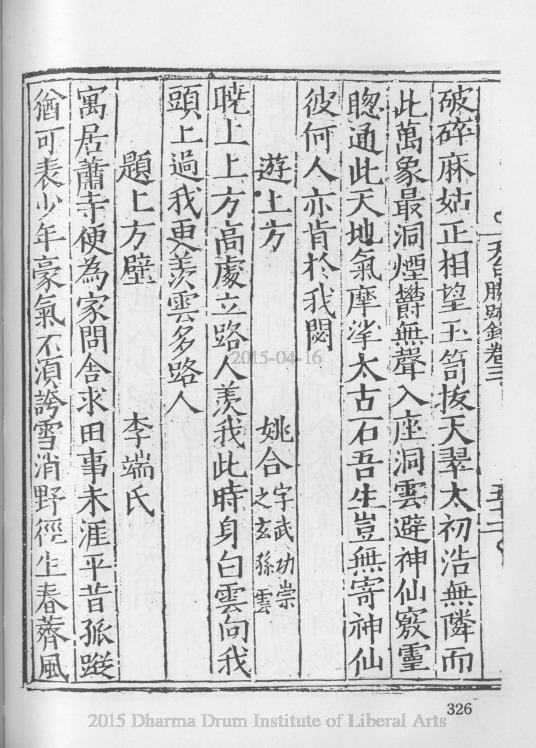 天台勝蹟錄卷三
破碎麻姑正相望玉笥拔天翠太初浩無隣而
此萬象最洞煙欝無聲入座洞雲避神仙竅靈
聰通此天地氣摩挲太古石吾生豈無寄神仙
彼何人亦肯於我閟
遊上方 姚合字武功崇之玄孫雲
暁上上方高處立路人羨我此時身白雲向我
頭上過我更羨雲多路人
題上方壁 李端氏
寓居蕭寺便為家問舍求田事未涯平昔孤蹤
猶可表少年豪氣不湏誇雪消野徑生春薺風
2015-04-16
326
2015 Dharma Drum Institute of Liberal Arts